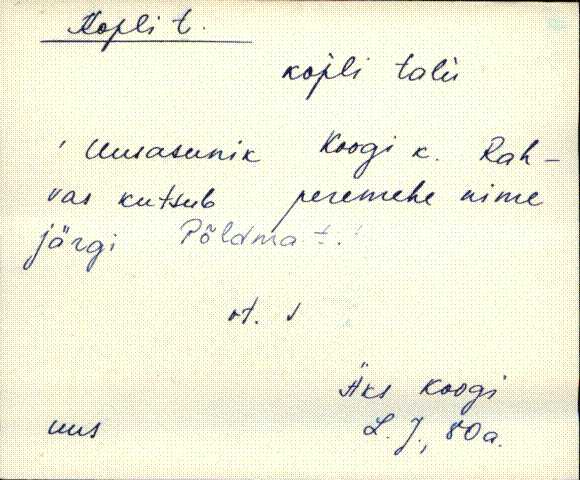 Kopli t.
kopli talu
' Uusasunik Koogi k. Rah-
vas kutsub peremehe nime
järgi Põldma t.'
Äks Koogi
uus L. J., 80a.